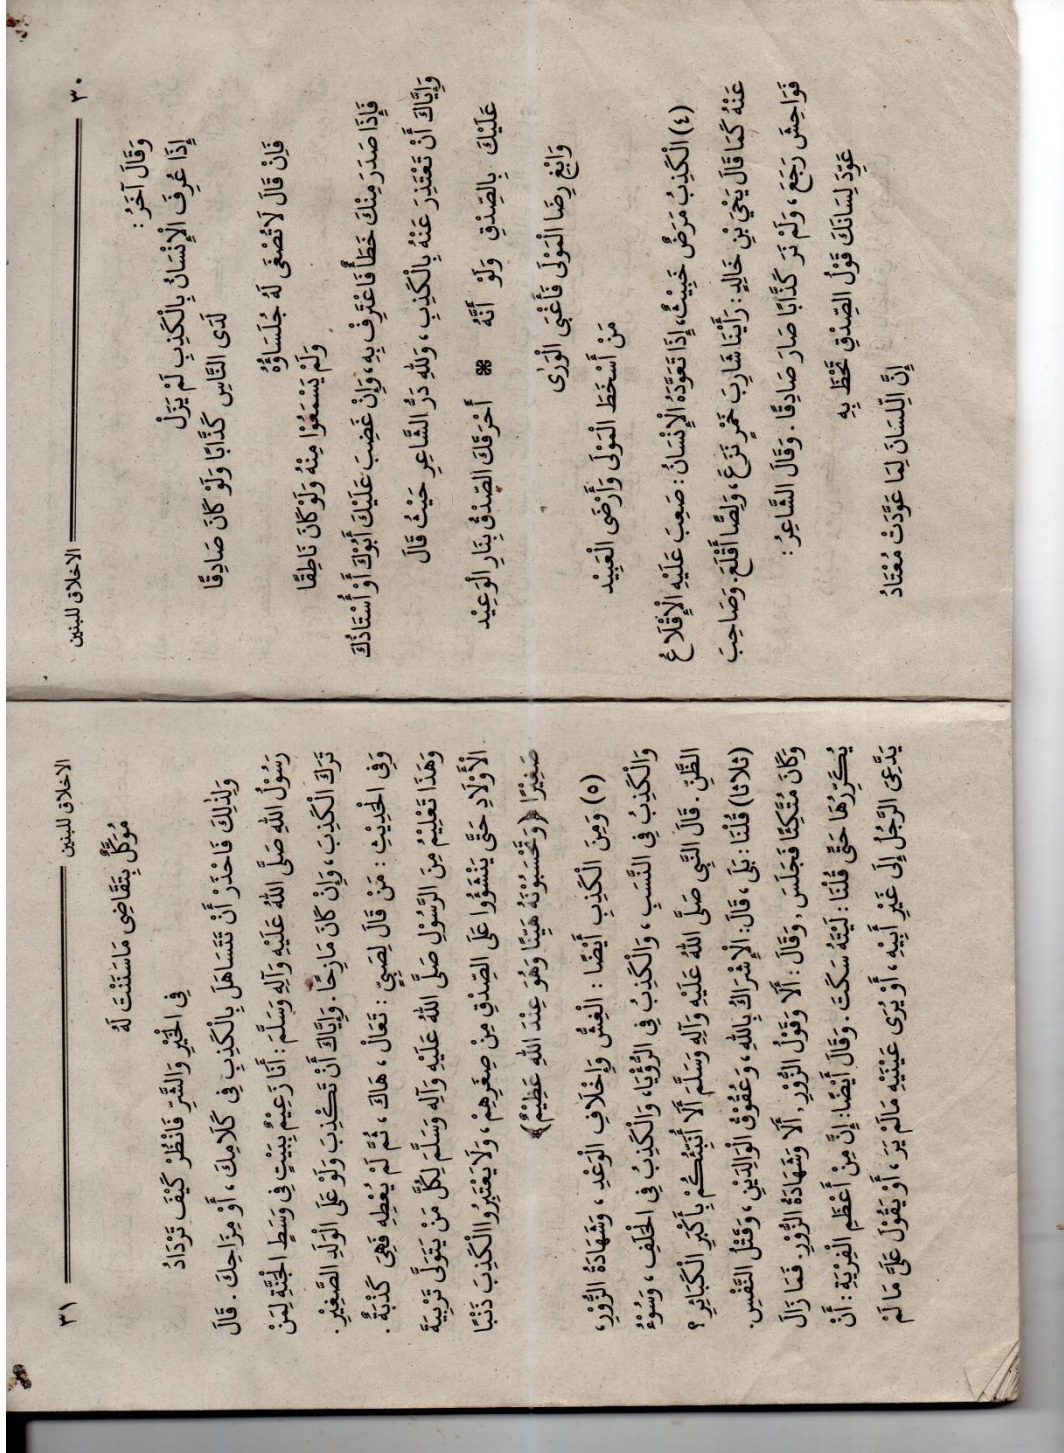 الاخلاق للبنين ٣٠
وَقَالَ آخَرُ:
إِذَا عُرِفَ الْإِنْسَانُ بِالْكَذِبِ لَمْ يَزَلْ
لَدَى النَّاسِ كَذَّابًا وَلَوْ كَانَ صَادِقًا
فَإِنْ قَالَ لَا تُصْغَى لَهُ جُلَسَاؤُهُ
وَلَمْ يَسْمَعُوْا مِنْهُ وَلَوْ كَانَ نَاطِقًا
فَإِذَا صَدَرَ مِنْكَ خَطَأٌ فَاعْتَرِفْ بِهِ، وَإِنْ غَضِبَ عَلَيْكَ أَبُوْكَ أَوْ أُسْتَاذُكَ
وَإِيَّاكَ أَنْ تَعْتَذِرَ عَنْهُ بِالْكَذِبِ، وَلِلّٰهِ دَرُّ الشَّاعِرِ حَيْثُ قَالَ
عَلَيْكَ بِالصِّدْقِ وَلَوْ أَنَّهُ ❊ أَحْرَقَكَ الصِّدْقُ بِنَارِ الْوَعِيْدِ
وَابْغِ رِضَا الْمَوْلَى فَأَغْبَى الْوَرٰى
مَنْ أَسْخَطَ الْمَوْلَى وَأَرْضَى الْعَبِيْدَ
(٤) الْكَذِبُ مَرَضٌ خَبِيْثٌ، إِذَا تَعَوَّدَهُ الْإِنْسَانُ: صَعِبَ عَلَيْهِ الْإِقْلَاعُ
عَنْهُ كَمَا قَالَ يَحْيَ بْنِ خَالِدٍ: رَأَيْنَا شَارِبَ خَمْرٍ نَزَعَ، وَلِصًّا أَقْلَعَ. وَصَاحِبَ
فَوَاحِشَ رَجَعَ، وَلَمْ نَرَ كَذَّابًا صَارَ صَادِقًا. وَقَالَ الشَّاعِرُ:
عَوِّدْ لِسَانَكَ قَوْلَ الصِّدْقِ تَحْظَ بِهِ
إِنَّ اللِّسَانَ لِمَا عَوَّدْتَ مُعْتَادُ
الاخلاق للبنين ٣١
مُوَكَّلٌ بِتَقَاضِى مَا سَنَنْتَ لَهُ
فِى الْخَيْرِ وَالشَّرِّ فَانْظُرْ كَيْفَ تَزْدَادُ
وَلِذٰلِكَ فَاحْذَرْ أَنْ تَتَسَاهَلَ بِالْكَذِبِ فِى كَلَامِكَ، أَوْ مِزَاحِكَ. قَالَ
رَسُوْلُ اللهِ صَلَّى اللهُ عَلَيْهِ وَآلِهِ وَسَلَّمَ: أَنَا زَعِيْمٌ بِبَيْتٍ فِى وَسَطِ الْجَنَّةِ لِمَنْ
تَرَكَ الْكَذِبَ، وَإِنْ كَانَ مَازِحًا. وَإِيَّاكَ أَنْ تَكْذِبَ وَلَوْ عَلَى الْوَلَدِ الصَّغِيْرِ.
وَفِى الْحَدِيْثِ: مَنْ قَالَ لِصَبِيٍّ: تَعَالْ، هَاكَ، ثُمَّ لَمْ يُعْطِهِ فَهِيَ كَذْبَةٌ.
وَهٰذَا تَعْلِيْمٌ مِنَ الرَّسُوْلِ صَلَّى اللهُ عَلَيْهِ وَآلِهِ وَسَلَّمَ لِكُلِّ مَنْ يَتَوَلَّى تَرْبِيَةَ
الْأَوْلَادِ حَتَّى يَنْشَؤُوا عَلَى الصِّدْقِ مِنْ صِغَرِهِمْ، وَلَا يَعْتَبِرُوا الْكَذِبَ ذَنْبًا
صَغِيْرًا ﴿وَتَحْسَبُوْنَهُ هَيِّنًا وَهُوَ عِنْدَ اللهِ عَظِيْمٌ﴾
(٥) وَمِنَ الْكَذِبِ أَيْضًا: الْغِشُّ وَإِخْلَافِ الْوَعْدِ، وَشَهَادَةُ الزُّوْرِ،
وَالْكَذِبُ فِى النَّسَبِ، وَالْكَذِبُ فِى الرُّؤْيَا، وَالْكَذِبُ فِى الْحَلَفِ، وَسُوْءُ
الظَّنِّ. قَالَ النَّبِى صَلَّى اللهُ عَلَيْهِ وَآلِهِ وَسَلَّمَ أَلَا أُنَبِّئُكُمْ بِأَكْبَرِ الْكَبَائِرِ؟
(ثَلَاثًا) قُلْنَا: بَلَى، قَالَ: الْإِشْرَاكُ بِاللهِ، وَعُقُوْقُ الْوَالِدَيْنِ، وَقَتْلُ النَّفْسِ.
وَكَانَ مُتَّكِئًا فَجَلَسَ. وَقَالَ: أَلَا وَقَوْلُ الزُّوْرِ. أَلَا وَشَهَادَةُ الزُّوْرِ. فَمَا زَالَ
يُكَرِّرُهَا حَتَّى قُلْنَا: لَيْتَهُ سَكَتَ. وَقَالَ أَيْضًا: إِنَّ مِنْ أَعْظَمِ الْفِرْيَةِ: أَنْ
يَدَّعِيَ الرَّجُلُ إِلَى غَيْرِ أَبِيْهِ، أَوْ يُرَى عَيْنَيْهِ مَالَمْ يَرَ، أَوْ يَقُوْلَ عَلَيَّ مَا لَمْ